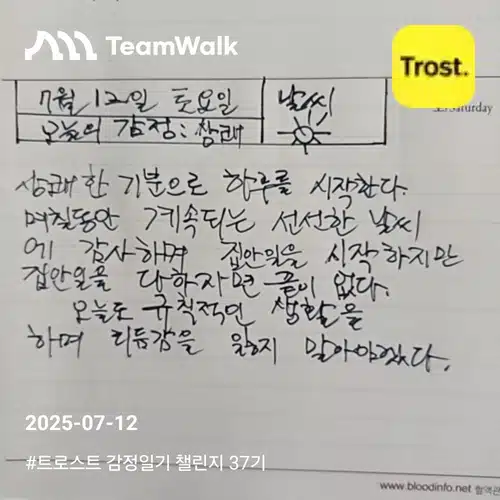 TeamWalk
Trost.
Saturday
7월 12일 토요일 날씨
오늘의 감정: 상쾌
상쾌한 기분으로 하루를 시작한다.
며칠동안 계속되는 선선한 날씨
에 감사하며 집안일을 시작하지만
집안일을 다하자면 끝이 없다.
오늘도 규칙적인 생활을
하며 리듬감을 잃지 말아야겠다.
2025-07-12
#트로스트 감정일기 챌린지 37기
www.bloodinfo.net 혈액관